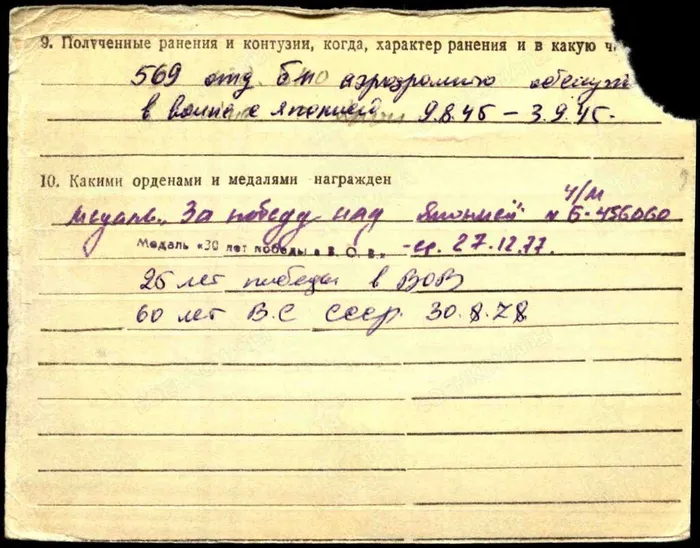 9. Полученные ранения и контузии, когда, характер ранения и в какую ч
569 отд. БАО аэродромно обслуж
в войне с Японией 9.8.45 – 3.9.45.
10. Какими орденами и медалями награжден
ч/м
медаль „За победу над Японией" № Б-456060
Медаль «30 лет победы в В.О.В.» –ср. 27.12.77.
25 лет победы в ВОВ
60 лет В.С СССР. 30.8.78